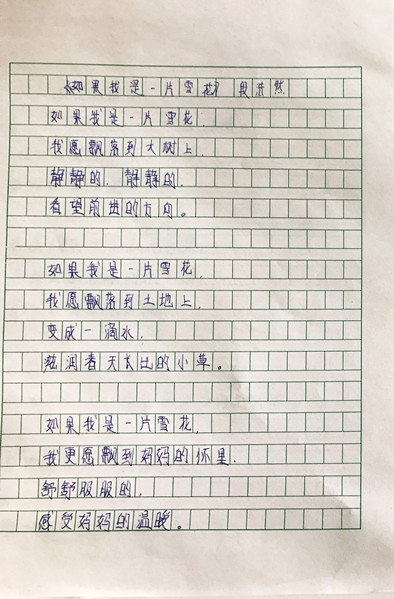 《如果我是一片雪花》 段亦然
如果我是一片雪花,
我愿飘落到大树上,
静静的,静静的,
看望前进的方向。
如果我是一片雪花,
我愿飘落到土地上,
变成一滴水,
滋润着天大比的小草。
如果我是一片雪花,
我更愿飘到妈妈的怀里,
舒舒服服的,
感受妈妈的温暖。